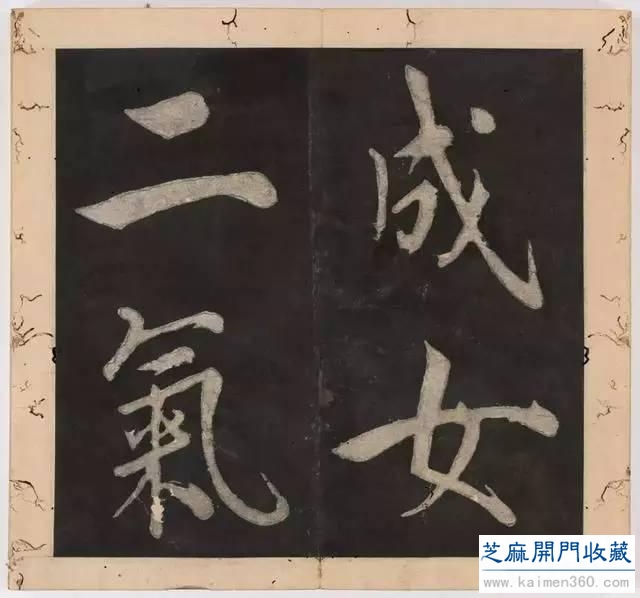 成女
二氣
芝麻開門收藏
www.kaimen360.com